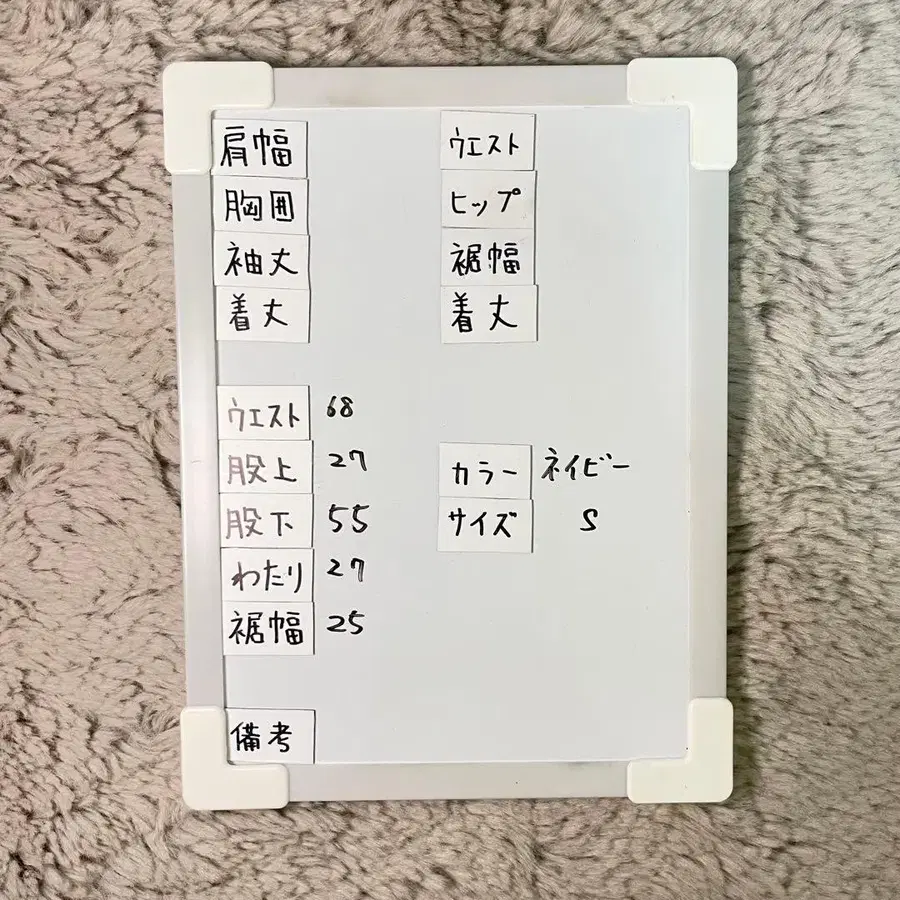 肩幅 ウエスト
胸囲 ヒップ
袖丈 裾幅
着丈 着丈
ウエスト 68
股上 27 カラー ネイビー
股下 55 サイズ S
わたり 27
裾幅 25
備考